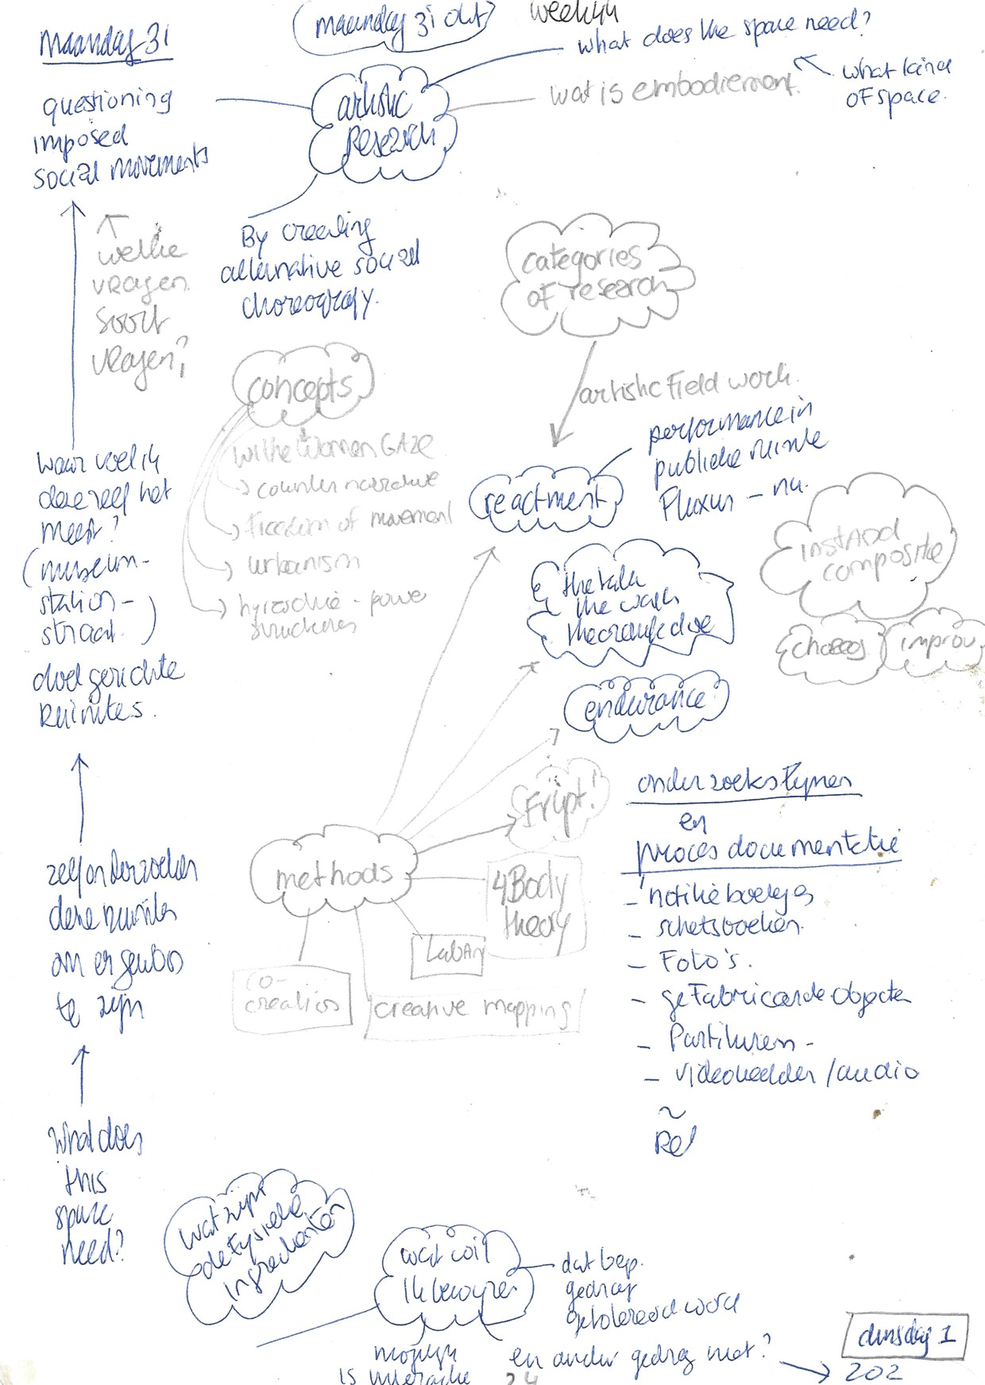 Maanday 31
(maanday 31 okt)
week 44
what does the space need?
what kind
of space.
wat is embodiement.
artistic
research
questioning
imposed
social movements
welke
vragen.
Soort
vragen?
By creating
alternative social
choreografy.
categories
of research
artistic Field work.
concepts
Women GAZE
counter narrative
Freedom of movement
urbanism
hyrarchie - power
structures
reactment
performance in
publieke ruimte
Fluxus - nu.
waar voel ik
deze zelf het
meest?
(museum-
station-
straat.)
doel gerichte
Ruimtes.
the talk
the walk
endurance
instand
composite
improv
methods
4Body
theory
LabAn
co-
creatios
creative mapping
onderzoeks lijnen
en
proces documentatie
- notitieboekjes
- schetsboeken
- Foto's.
- geFabriceerde Objecten
- Partituren -
- videobeelden / audio
zelf onderzoeken
deze ruimtes
om er
te zijn
What does
this
space
need?
wat zijn
de Fysieke
ingredienten
wat wil
ik
dat bep.
gedrag
getolereerd word
en ander gedrag niet?
is
24
dinsdag 1
202